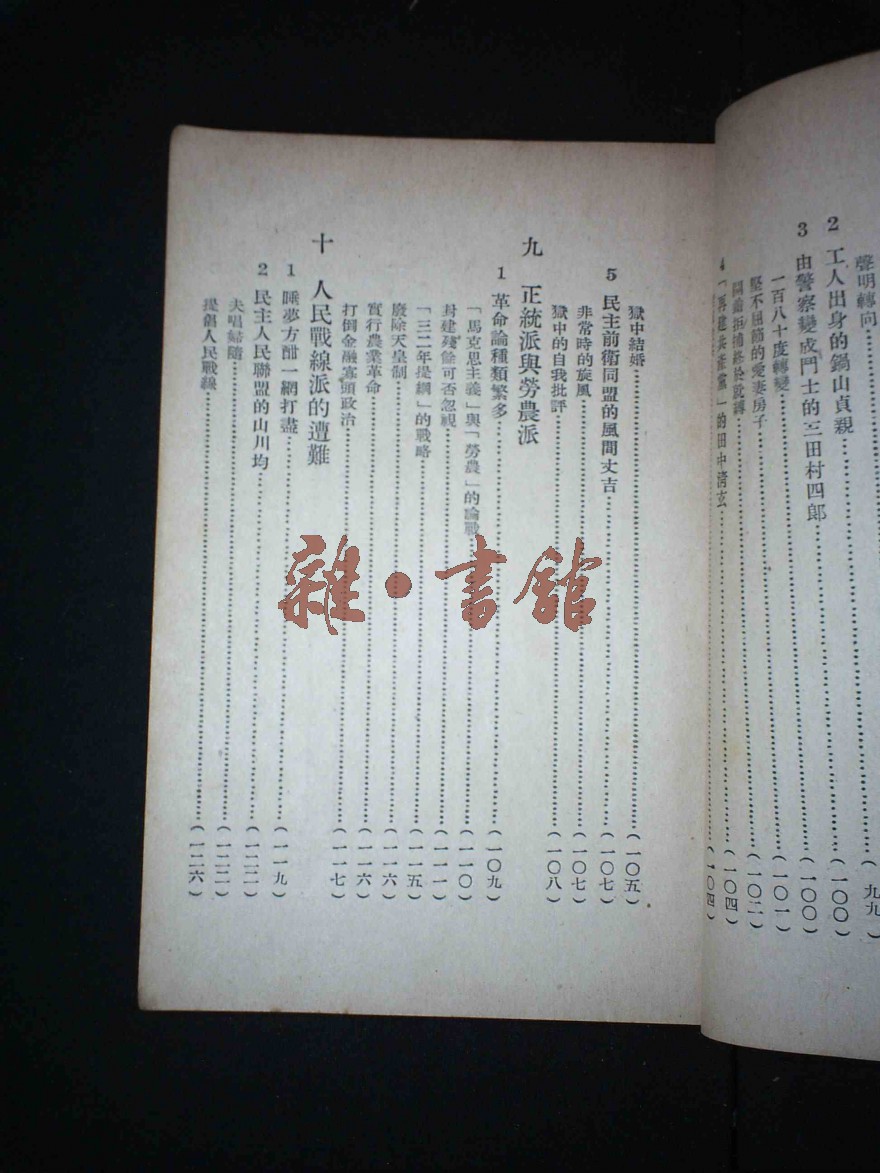 聲明轉向……(九九)
2 工人出身的鍋山貞親……(一〇〇)
3 由警察變成鬥士的三田村四郎……(一〇〇)
一百八十度轉變……(一〇一)
堅不屈節的愛妻房子……(一〇二)
開鎗拒捕終於就縛……(一〇四)
4 「再建共產黨」的田中清玄……(一〇四)
獄中結婚……(一〇五)
5 民主前衛同盟的風間丈吉……(一〇七)
非常時的旋風……(一〇七)
獄中的自我批評……(一〇八)
九 正統派與勞農派
1 革命論種類繁多……(一〇九)
「馬克思主義」與「勞農」的論戰……(一一〇)
封建殘餘可否忽視……(一一一)
「三二年提綱」的戰略……(一一五)
廢除天皇制……(一一六)
實行農業革命……(一一六)
打倒金融寡頭政治……(一一七)
十 人民戰線派的遭難
1 睡夢方酣一網打盡……(一一九)
2 民主人民聯盟的山川均……(一二二)
夫唱婦隨……(一二二)
提倡人民戰線……(一二六)
雜·書館